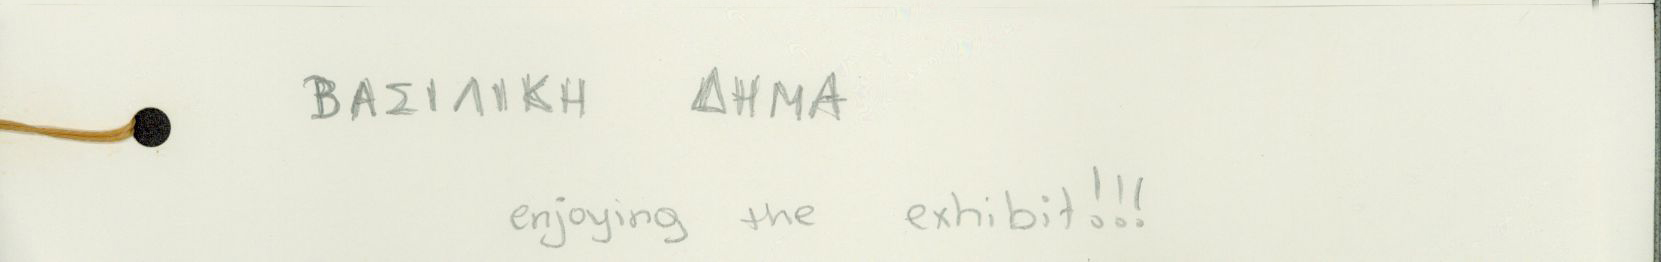 ΒΑΣΙΛΙΚΗ ΔΗΜΑ
enjoying the exhibit!!!